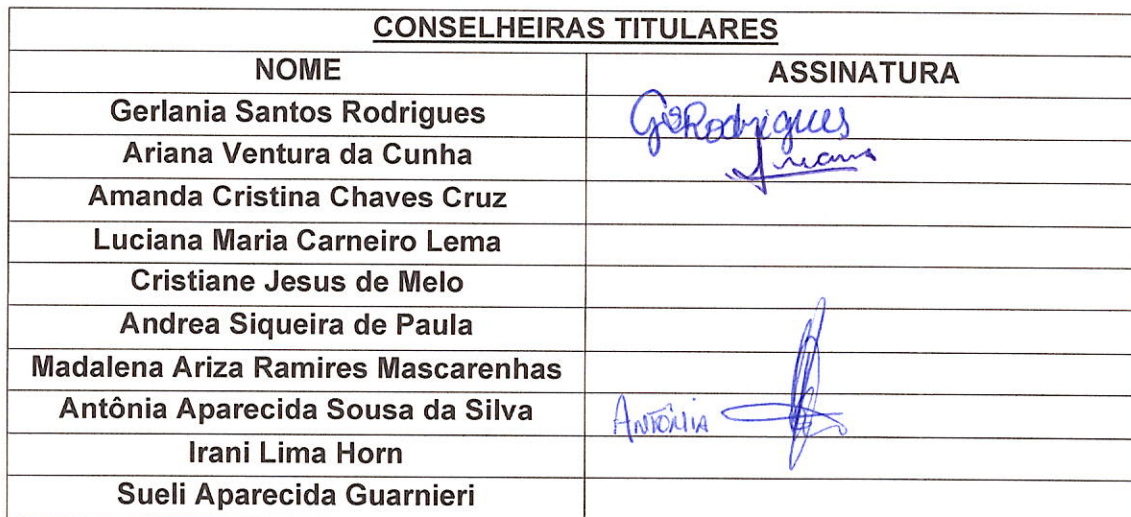 CONSELHEIRAS TITULARES
NOME ASSINATURA
Gerlania Santos Rodrigues GSRodrigues
Ariana Ventura da Cunha
Amanda Cristina Chaves Cruz
Luciana Maria Carneiro Lema
Cristiane Jesus de Melo
Andrea Siqueira de Paula
Madalena Ariza Ramires Mascarenhas
Antônia Aparecida Sousa da Silva ANTÔNIA
Irani Lima Horn
Sueli Aparecida Guarnieri